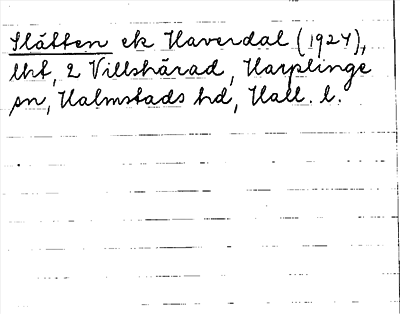 Slätten ek Haverdal (1924),
lht, 2 Villshärad, Harplinge
sn, Halmstads hd, Hall. l.